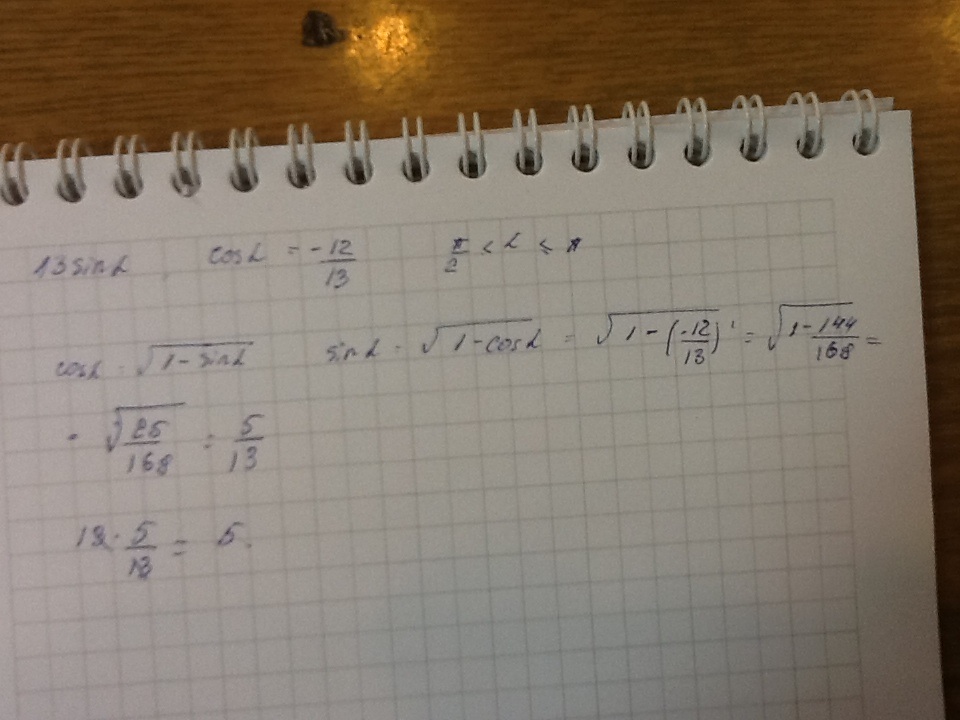 13 sin α, cos α = -12/13 π/2 < α ≤ π
cos α = √(1 - sin α) sin α = √(1 - cos α) = √(1 - (-12/13)') = √(1 - 144/168) =
= √(25/168) = 5/13
13 · 5/13 = 5.